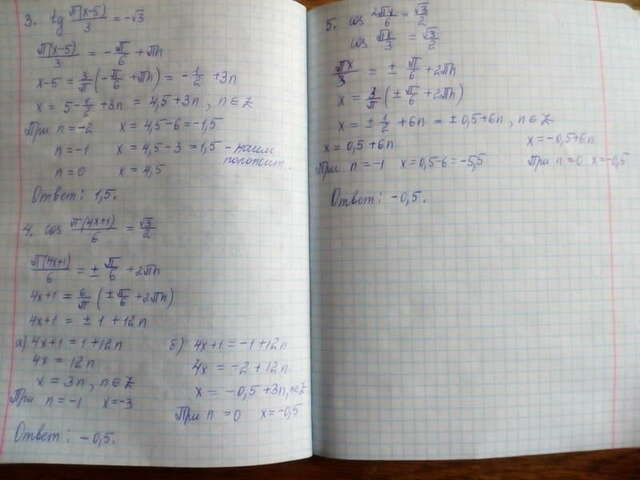 3. tg π(x-5)/3 = -√3
π(x-5)/3 = -π/6 + πn
x-5 = 3/π(-π/6 + πn) = -1/2 + 3n
x = 5 - 1/2 + 3n = 4,5 + 3n, n∈Z
При n = -2 x = 4,5 - 6 = -1,5
n = -1 x = 4,5 - 3 = 1,5 - наим
положит.
n = 0 x = 4,5
Ответ: 1,5.
4. cos π(4x+1)/6 = √3/2
π(4x+1)/6 = ± π/6 + 2πn
4x+1 = 6/π (± π/6 + 2πn)
4x+1 = ± 1 + 12n
а) 4x+1 = 1 + 12n
4x = 12n
x = 3n, n∈Z
При n = -1 x = -3
б) 4x+1 = -1 + 12n
4x = -2 + 12n
x = -0,5 + 3n, n∈Z
При n = 0 x = -0,5
Ответ: -0,5.
5. cos 2πx/6 = √3/2
cos πx/3 = √3/2
πx/3 = ± π/6 + 2πn
x = 3/π (± π/6 + 2πn)
x = ± 1/2 + 6n = ± 0,5 + 6n, n∈Z
x = 0,5 + 6n x = -0,5 + 6n
При n = -1 x = 0,5 - 6 = -5,5 При n = 0 x = -0,5
Ответ: -0,5.